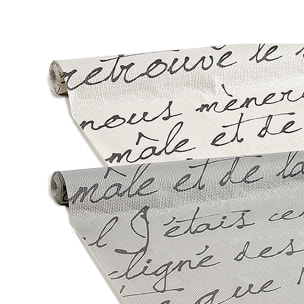 retrouvé le
nous mèner
mâle et de
mâle et de la
il j étais ce
ligné des
que